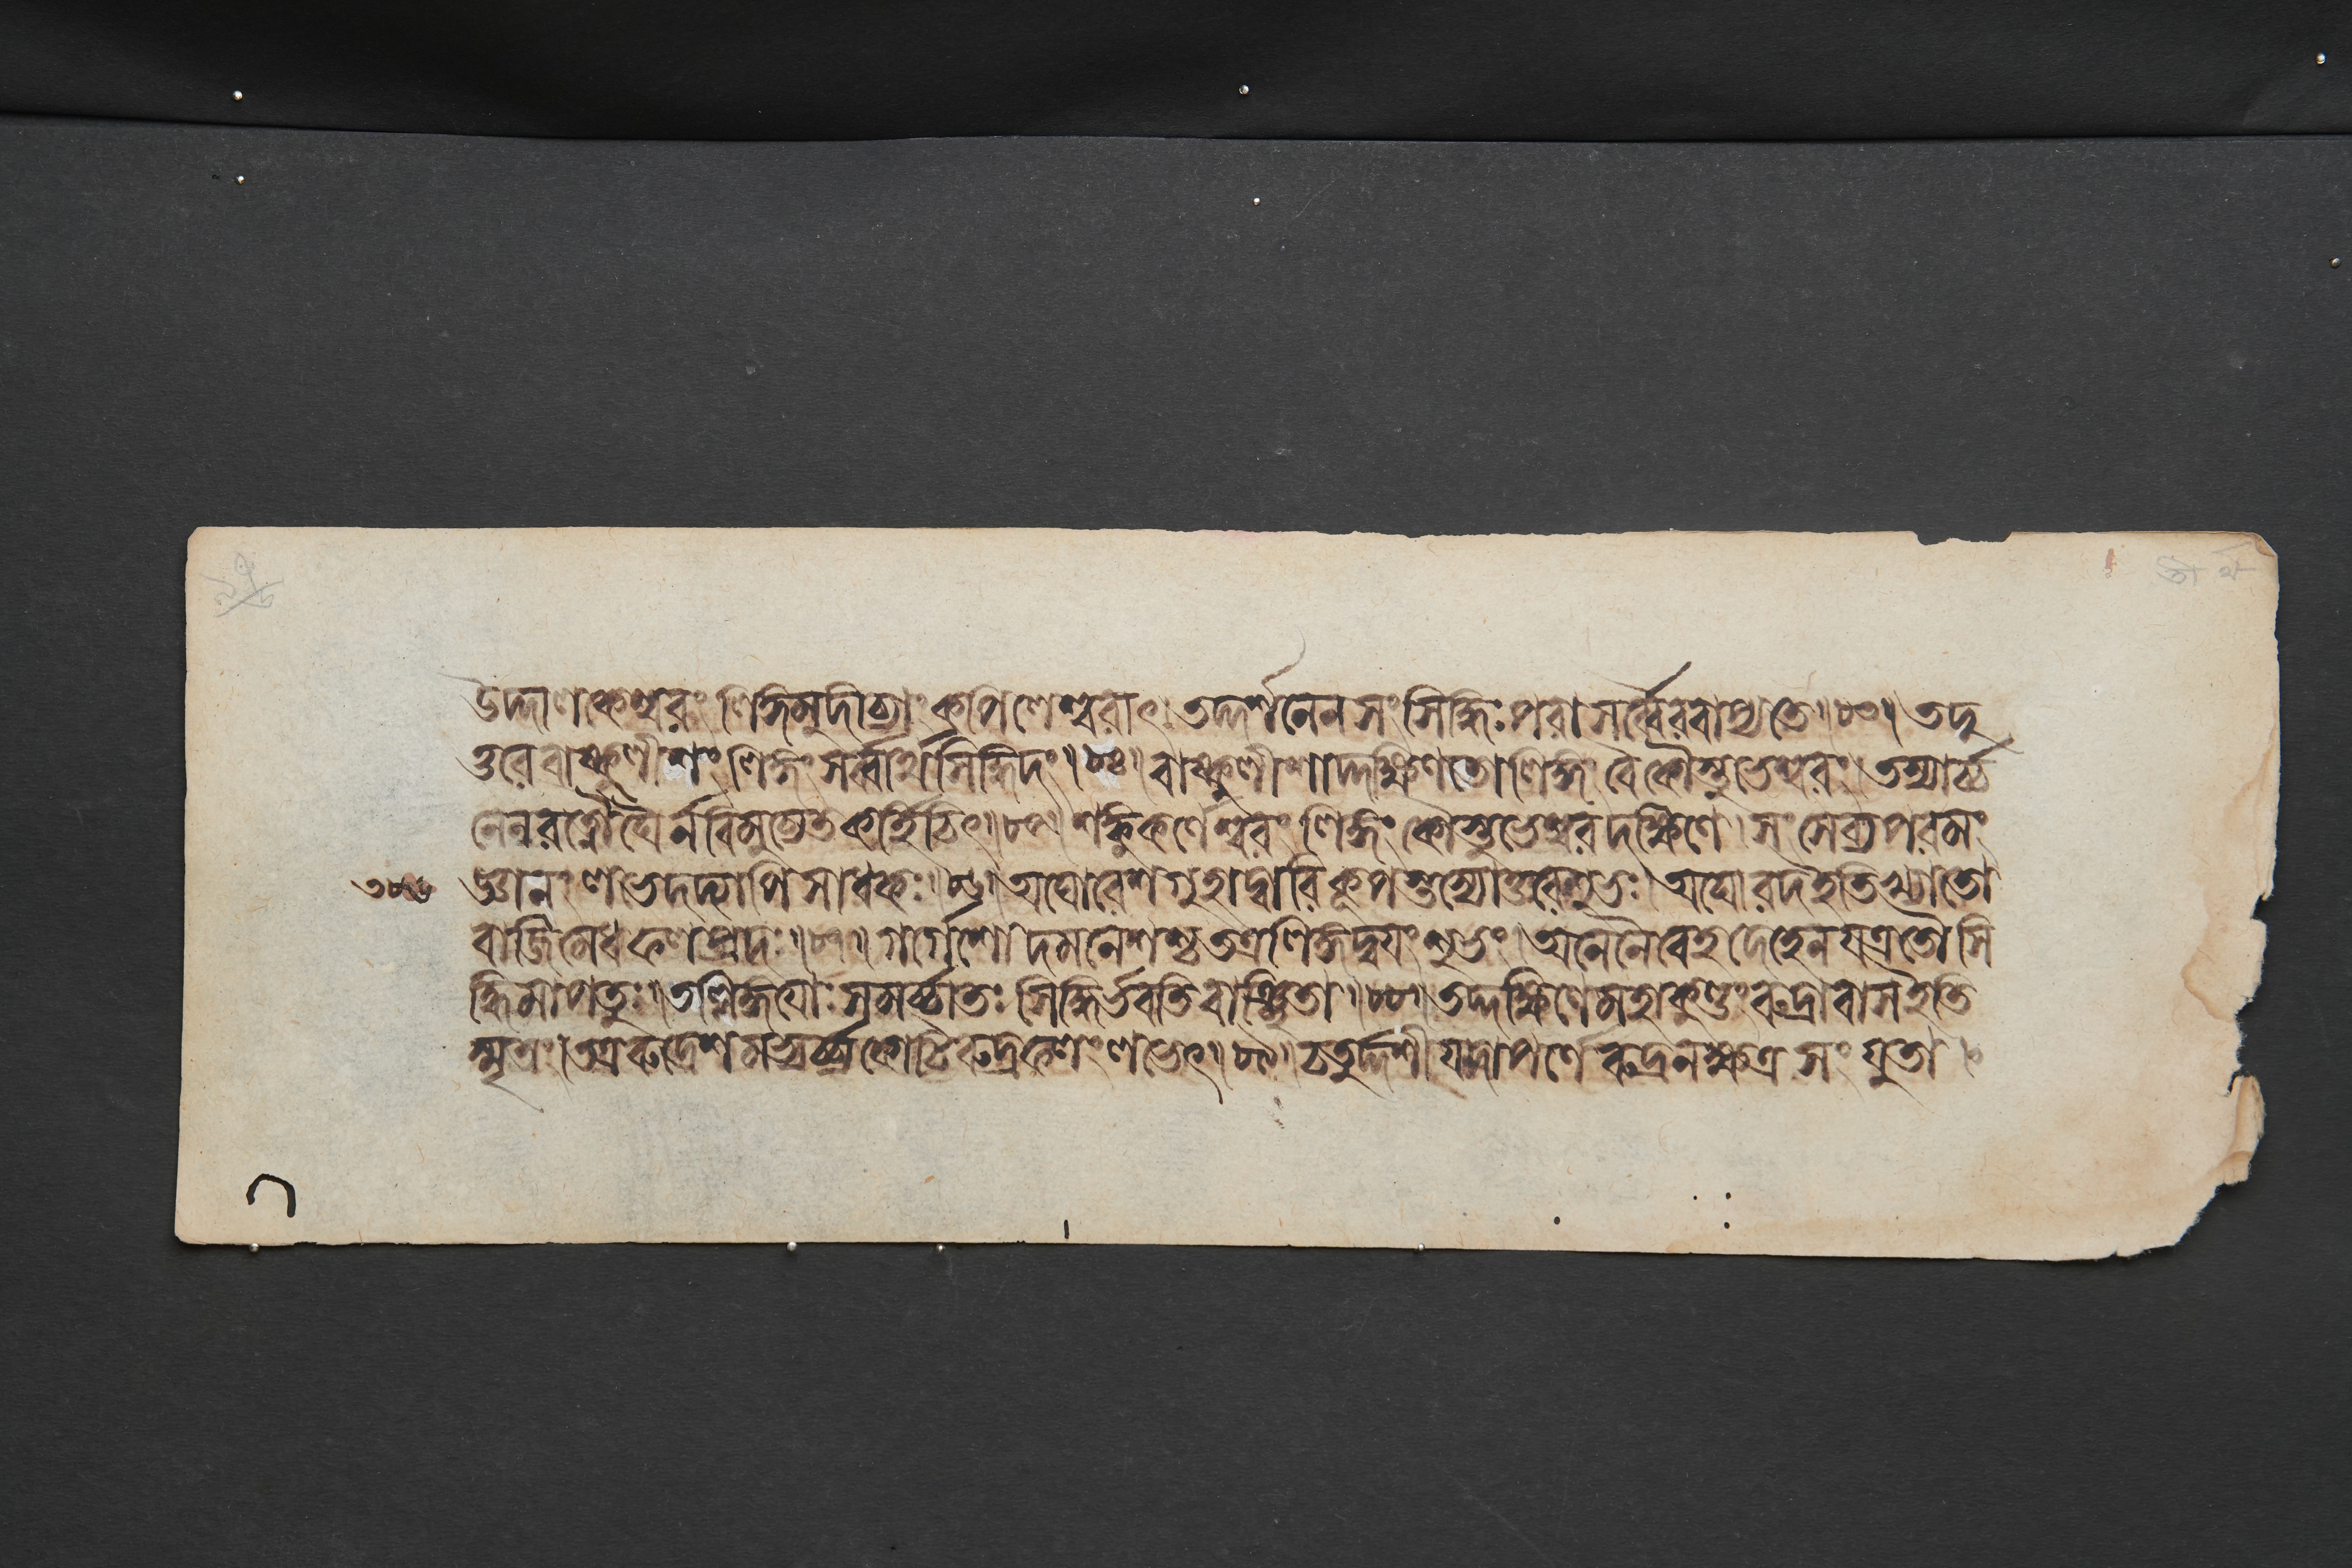 উদ্দালকেশ্বরং লিঙ্গমুদীচ্যাং কপিলেশ্বরাৎ। তদ্দর্শনেন সংসিদ্ধিঃ পরা সর্ব্বৈরবাপ্যতে॥৮৩॥ তদু
ত্তরে বাষ্কুলীশং লিঙ্গং সর্ব্বার্থসিদ্ধিদং॥৮৪॥ বাষ্কুলীশাদ্দক্ষিণতো লিঙ্গং বৈ কৌস্তুভেশ্বরং। তস্যার্চ্চ
নেন রত্নৌঘৈর্ন বিমুচ্যেত কর্হিচিৎ॥৮৫॥ শঙ্কুকর্ণেশ্বরং লিঙ্গং কৌস্তুভেশ্বরদক্ষিণে। সংসেব্য পরমং
৩৮৬ জ্ঞানং লভেদদ্যাপি সাধকঃ॥৮৬॥ অঘোরেশ গুহাদ্বারি কূপস্তস্যোত্তরে শুভঃ। অঘোরদ ইতি খ্যাতো
বাজিমেধফলপ্রদঃ॥৮৭॥ গর্গেশো দমনেশশ্চ তত্র লিঙ্গদ্বয়ং শুভং। অনেনৈবেহ দেহেন যত্র তৌ সি
দ্ধিমাপতুঃ॥ তল্লিঙ্গয়োঃ সমর্চ্চাতঃ সিদ্ধির্ভবতি বাঞ্ছিতা॥৮৮॥ তদ্দক্ষিণে মহাকুণ্ডং রুদ্রাবাস ইতি
স্মৃতং। তত্র রুদ্রেশমভ্যর্চ্চ্য কোটিরুদ্রফলং লভেৎ॥৮৯॥ চতুর্দ্দশী যদাপর্ণে রুদ্রনক্ষত্রসংযুতা।